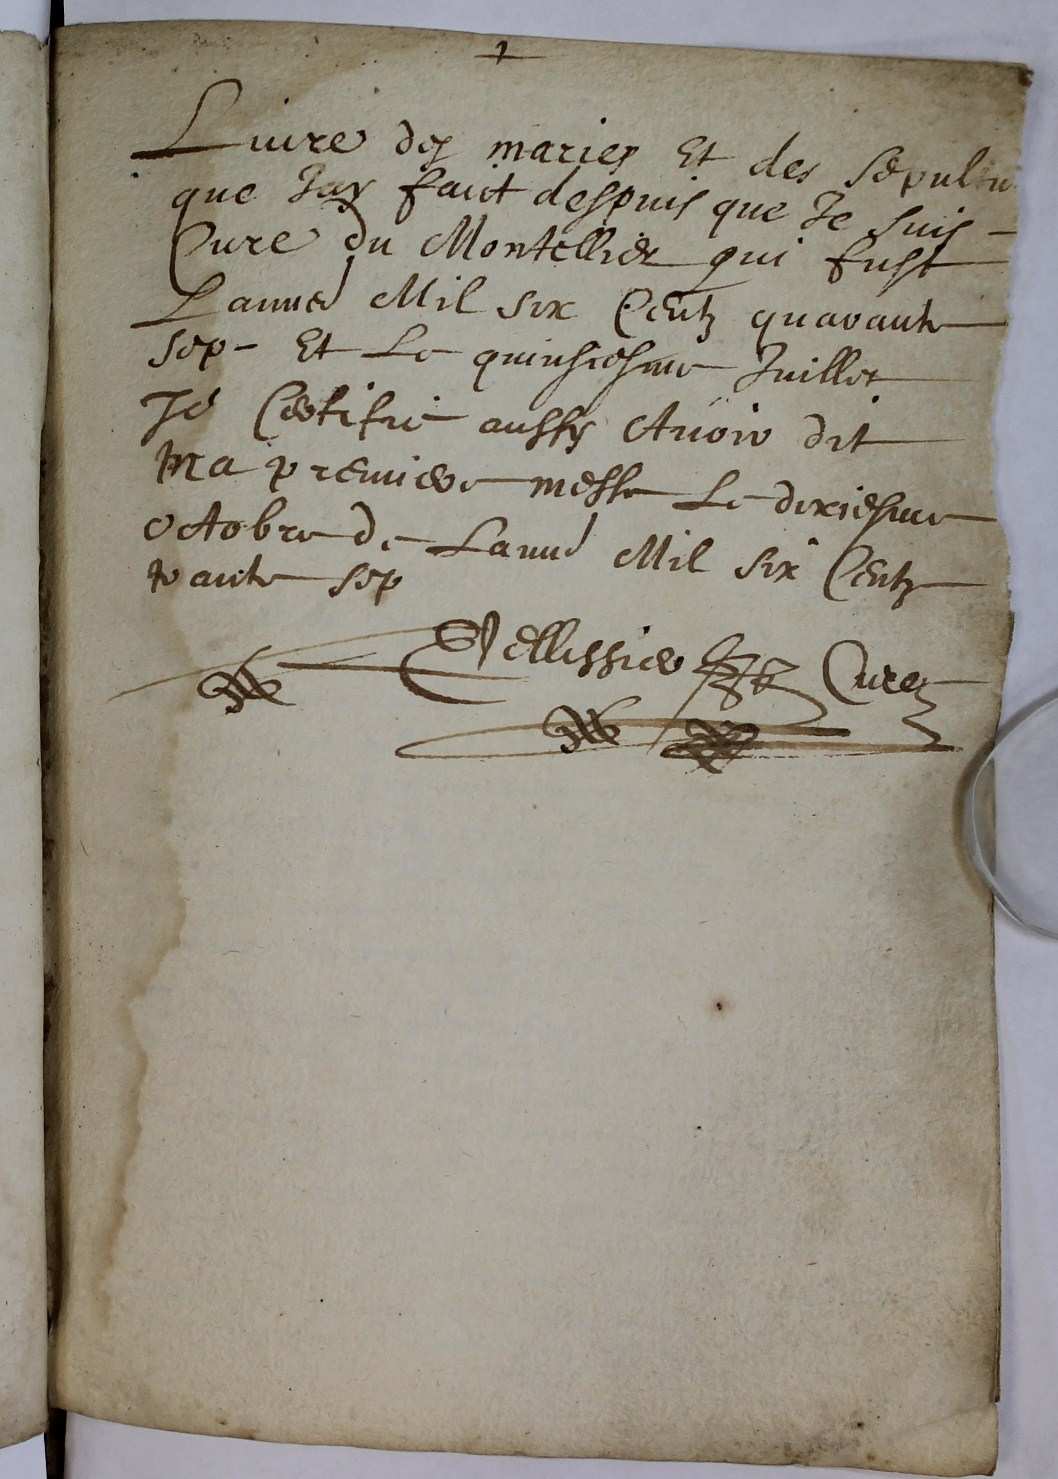 Livre des mariés Et des sepultu
que Jay faict despuis que Je suis
Curé du Montellier qui fust
L'année Mil six Centz quarante
sep Et Le quinsiesme Juillet
Je Certifie aussy Avoir dit
Ma premiere messe Le dixiesme
octobre de Lanné Mil six Centz
trante sep
Pellissier Curé